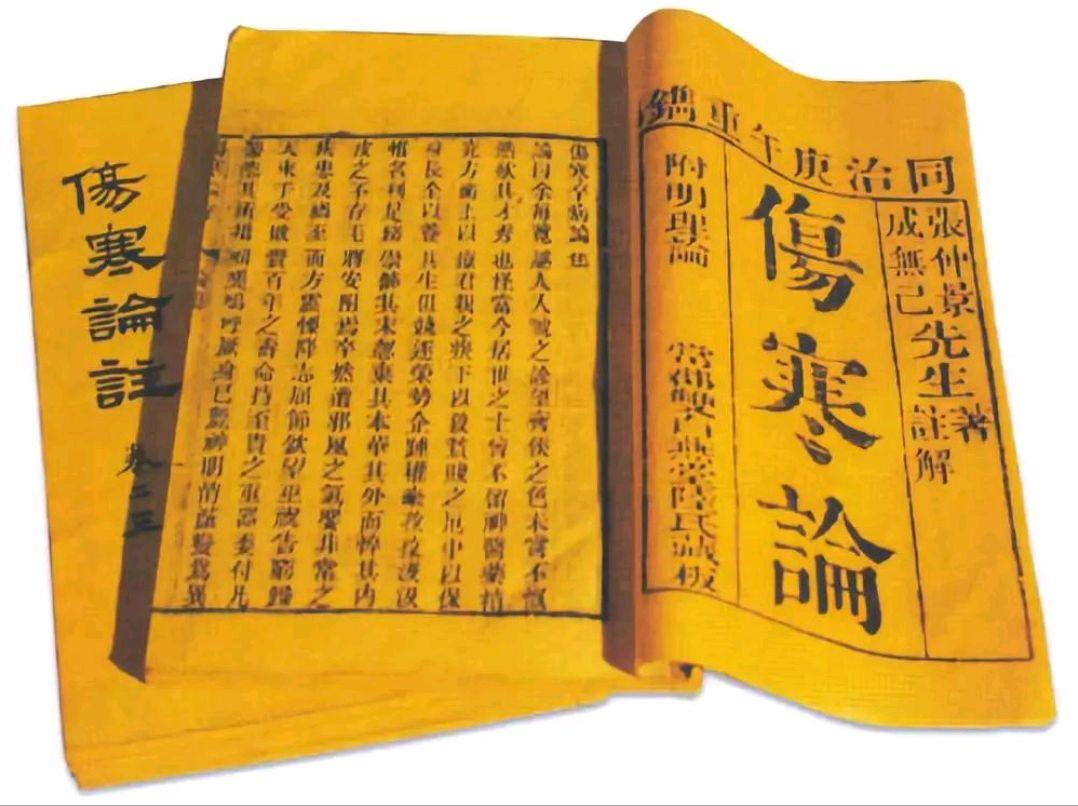 同治庚午重鐫
張仲景先生著
成無己註解
傷寒論
附明理論
常郡雙白燕堂陸氏藏板
傷寒卒病論集
論曰余每覽越人入虢之診望齊侯之色未嘗不慨
然歎其才秀也怪當今居世之士曾不留神醫藥精
究方術上以療君親之疾下以救貧賤之厄中以保
身長全以養其生但競逐榮勢企踵權豪孜孜汲汲
惟名利是務崇飾其末忽棄其本華其外而悴其內
皮之不存毛將安附焉卒然遭邪風之氣嬰非常之
疾患及禍至而方震慄降志屈節欽望巫祝告窮歸
天束手受敗賫百年之壽命持至貴之重器委付凡
醫恣其所措咄嗟嗚呼厥身已斃神明消滅變為異
傷寒論註
卷二三